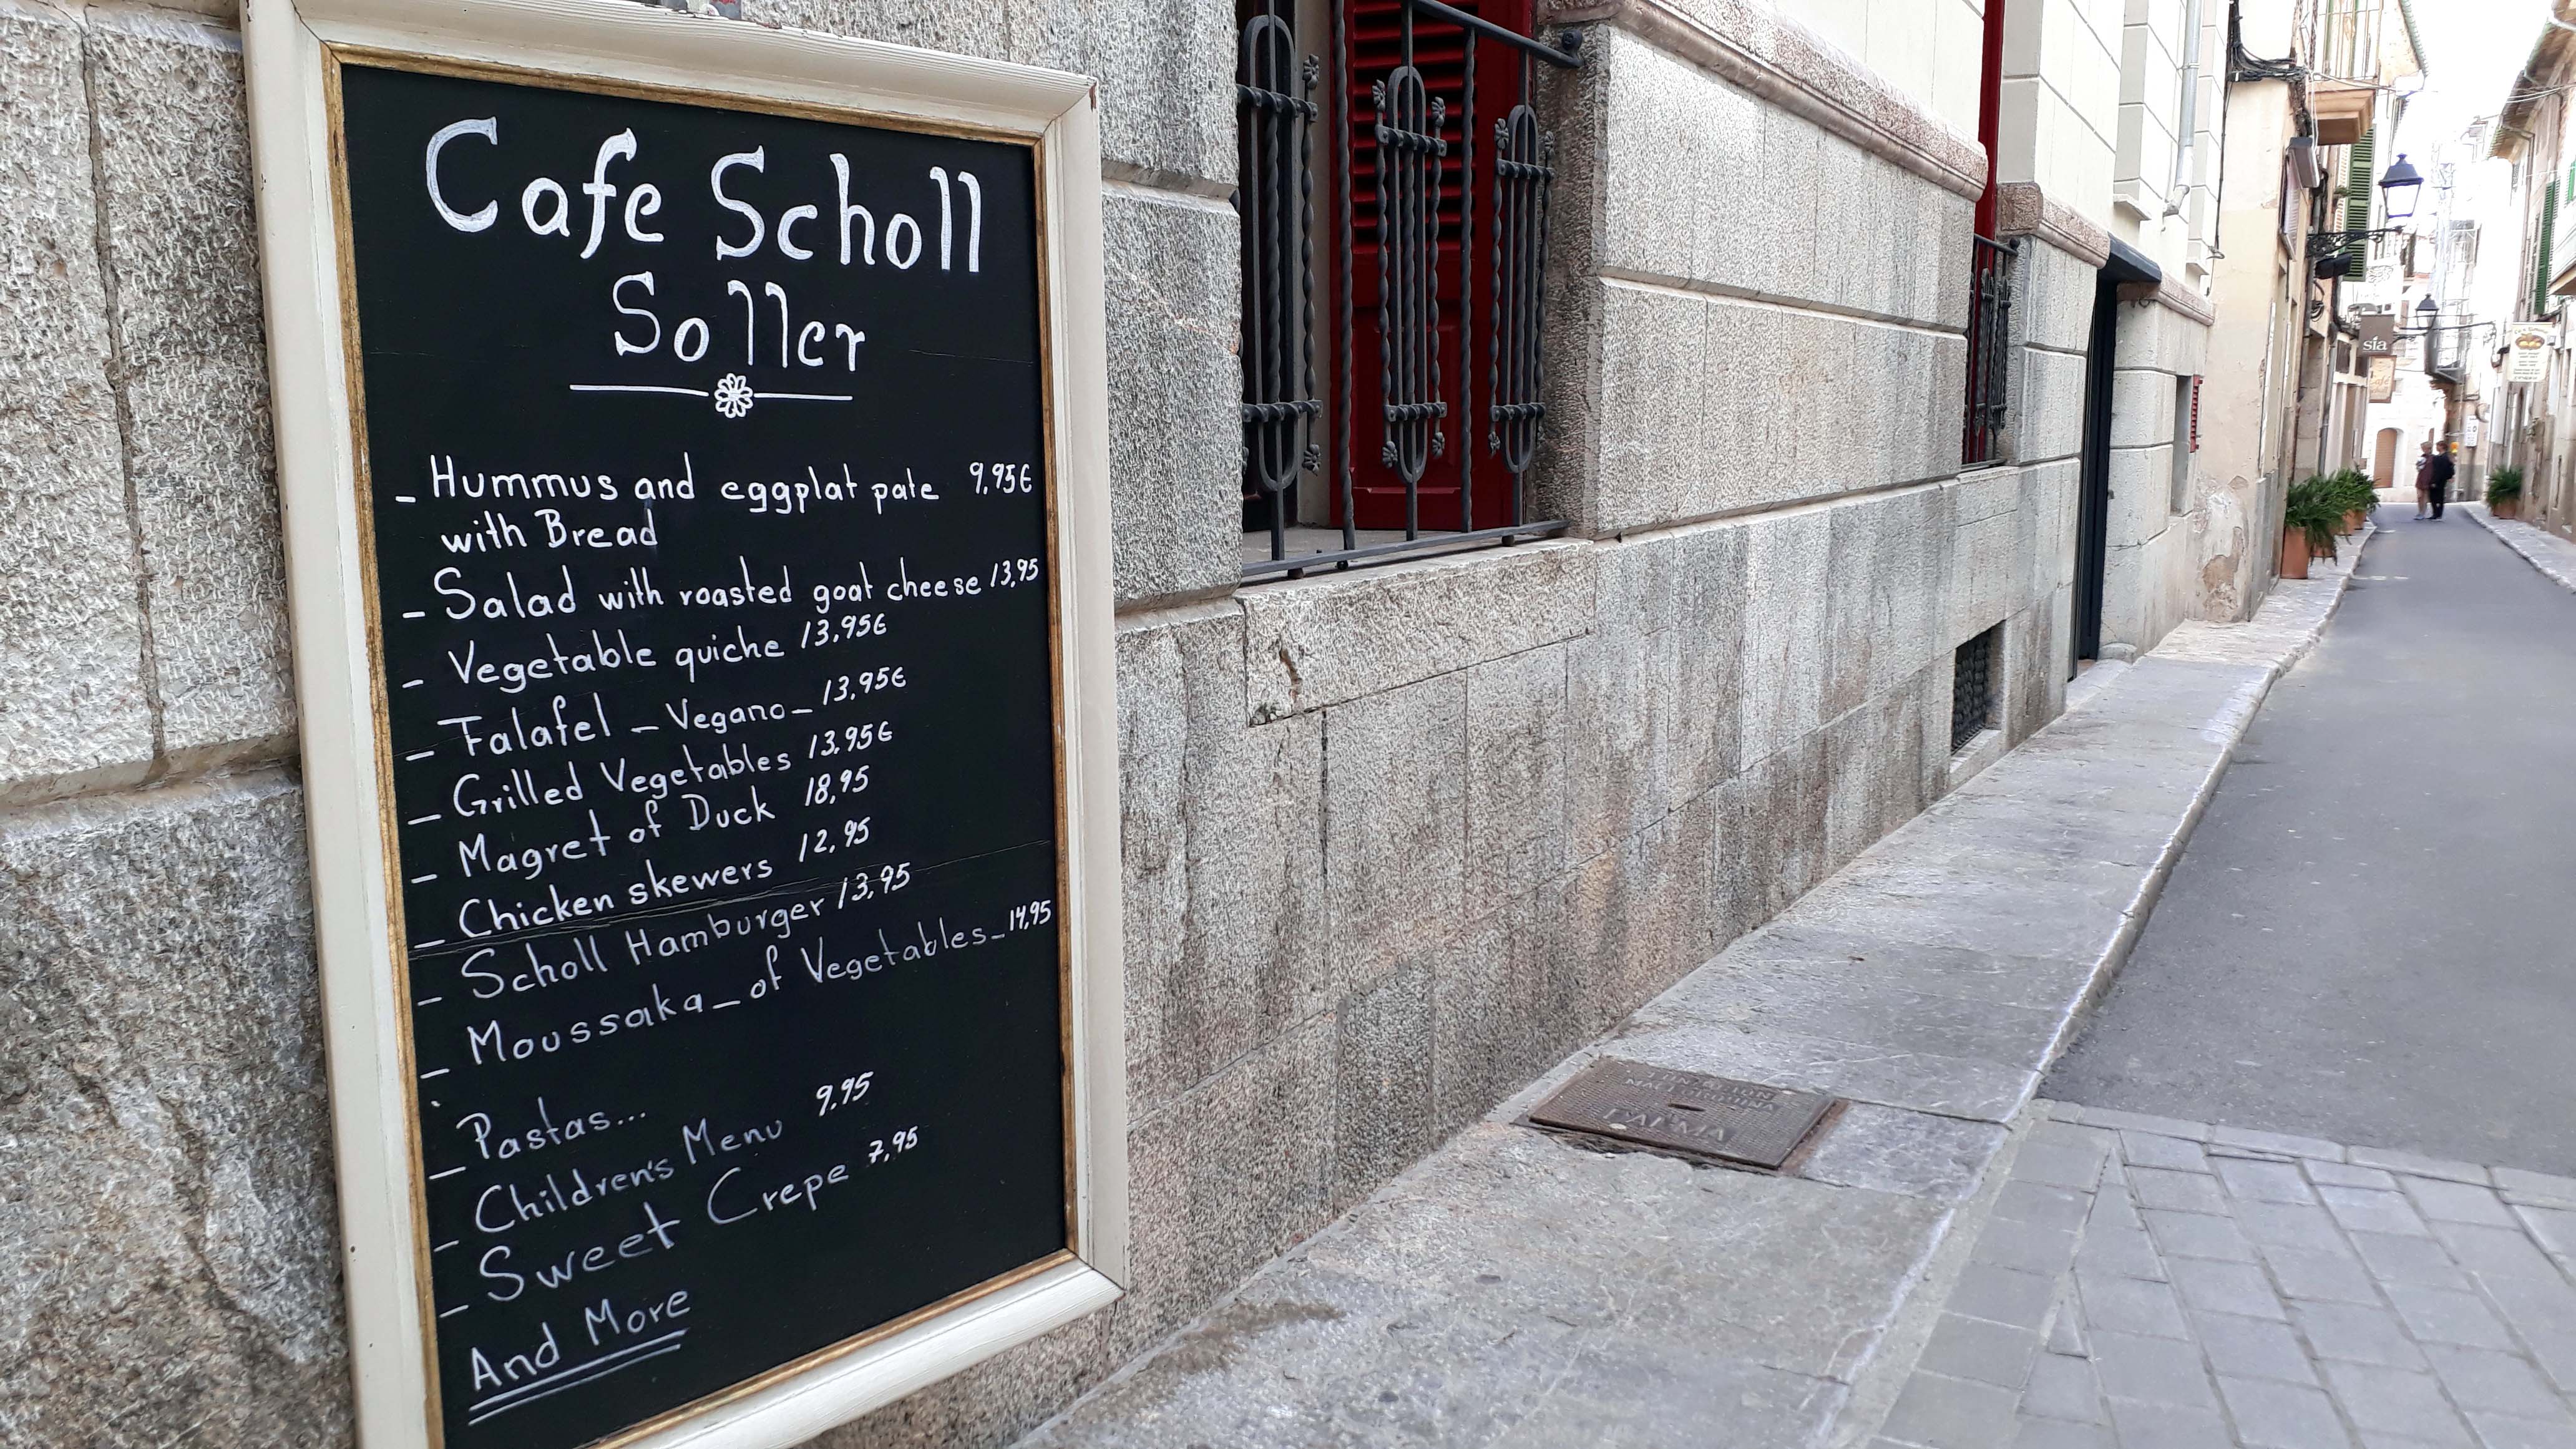 Cafe Scholl
Soller
- Hummus and eggplat pate 9,95€
with Bread
- Salad with roasted goat cheese 13,95
- Vegetable quiche 13,95€
- Falafel - Vegano - 13,95€
- Grilled Vegetables 13,95€
- Magret of Duck 18,95
- Chicken skewers 12,95
- Scholl Hamburger 13,95
- Moussaka - of Vegetables - 14,95
- Pastas...
- Children's Menu 9.95
- Sweet Crepe 7,95
And More
sía
PALMA